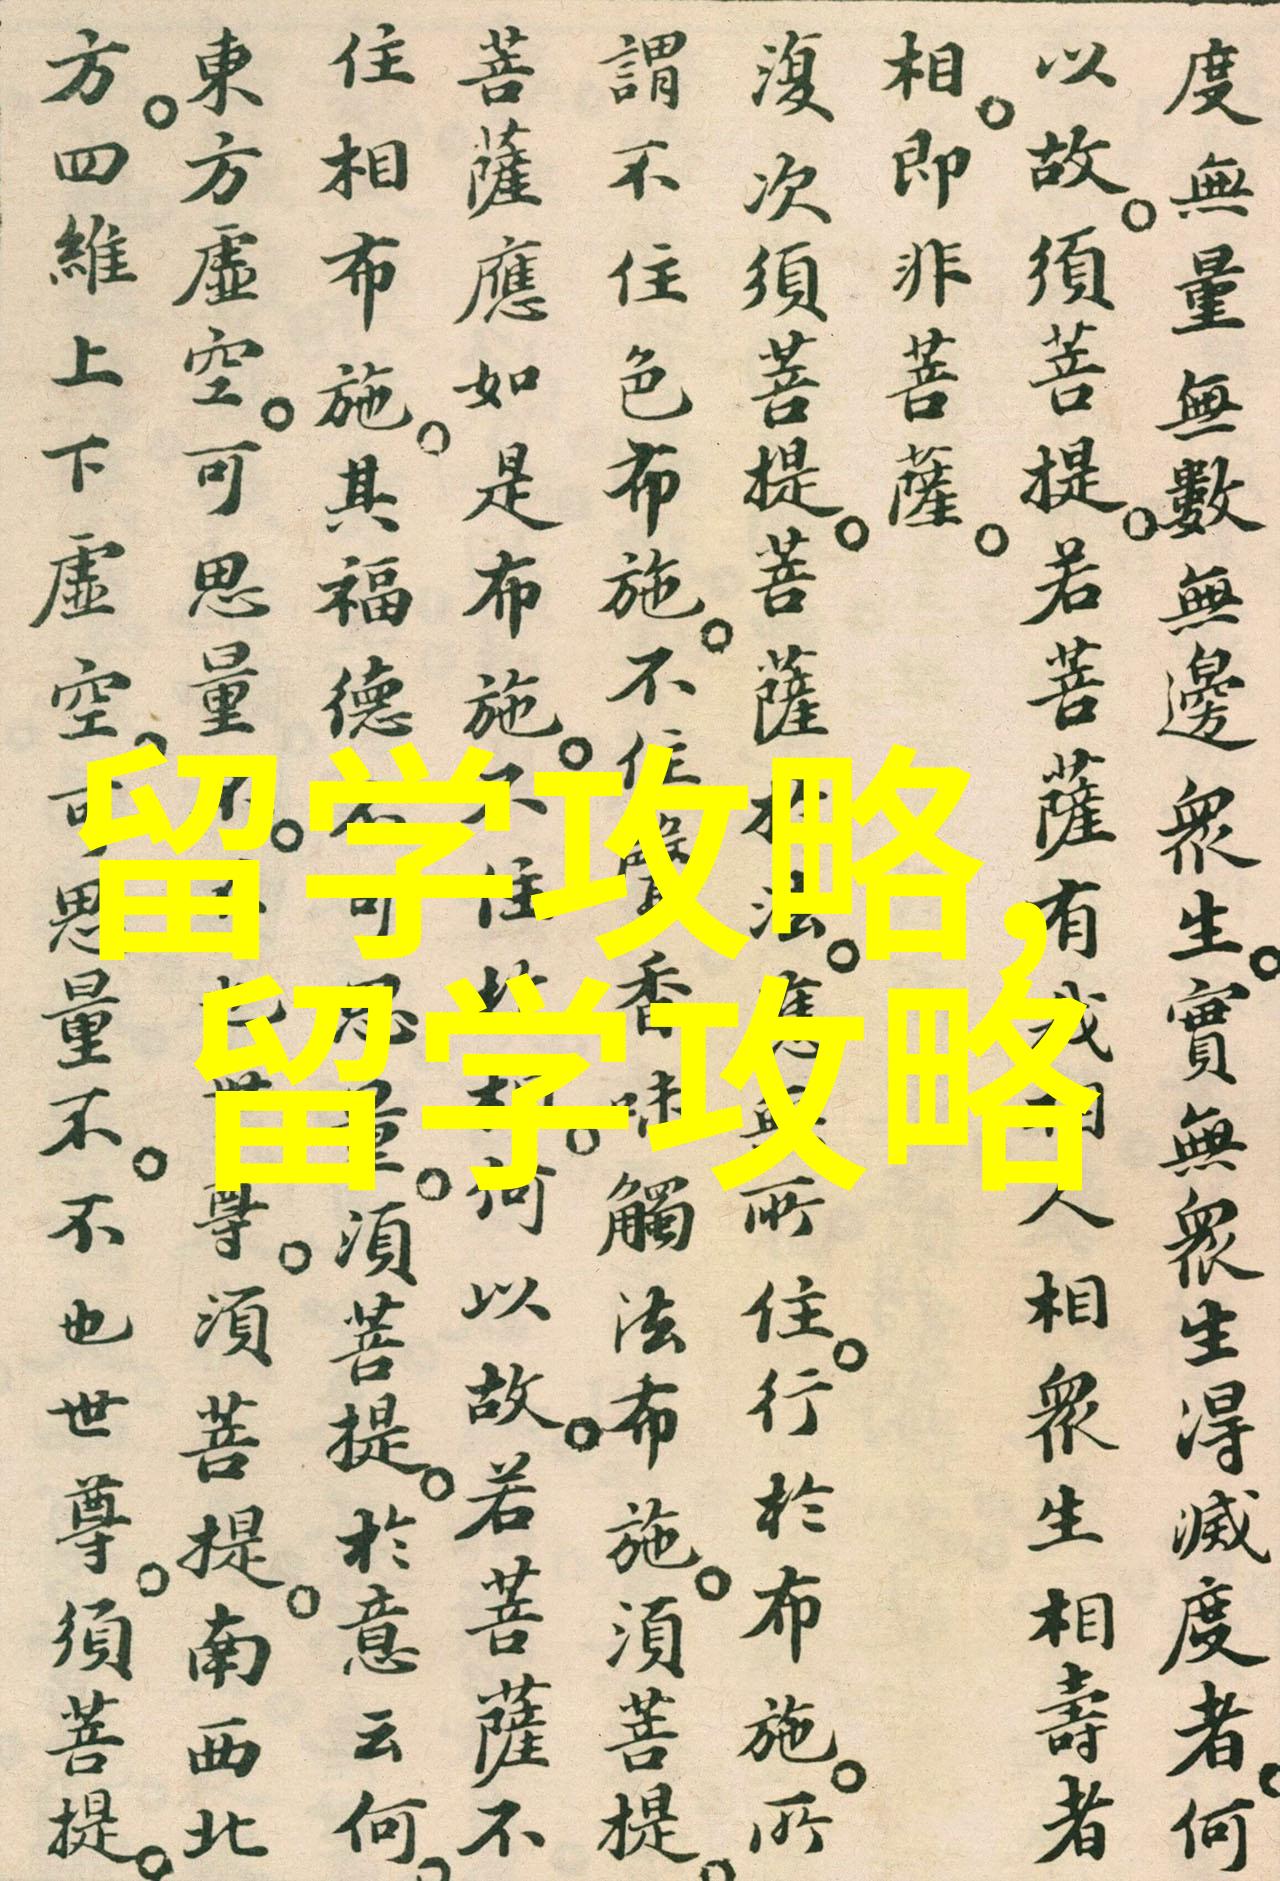 度無量無數無邊眾生。實無眾生得滅度者。何
以故。須菩提。若菩薩有我相人相眾生相壽者
相。即非菩薩。
復次須菩提。菩薩於法。應無所住。行於布施。所
謂不住色布施。不住聲香味觸法布施。須菩提。
菩薩應如是布施。不住於相。何以故。若菩薩不
住相布施。其福德不可思量。須菩提。於意云何。
東方虛空。可思量不。不也世尊。須菩提。南西北
方。四維上下虛空。可思量不。不也世尊。須菩提。
留学攻略,
留学攻略